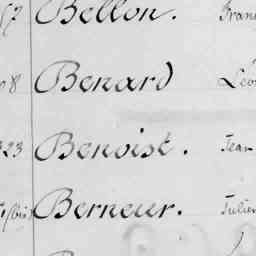 57 Bellon. Fran
78 Benard Léo
323 Benoist. Jean
(bis) Berneur. Julien